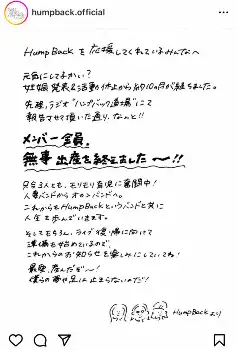 humpback.official
HumpBackを応援してくれているみんなへ
元気にしてるかい？
妊娠発表&活動休止から約10ヶ月が経ちました。
先程、ラジオ"ハンプバック道場"にて
報告させて頂いた通り、なんと!!
メンバー全員、
無事出産を終えました〜!!
只今3人とも、モリモリ育児に奮闘中！
人妻バンドからオカンバンドへ。
これからもHumpBackというバンドと共に
人生を歩んでいきます。
そしてもちろん、ライブ復帰に向けて
準備も始めているので、
これからのお知らせを楽しみにしていてね！
最高、産んだぞ〜！
僕らの夢や足は止まらないのだ！
HumpBackより